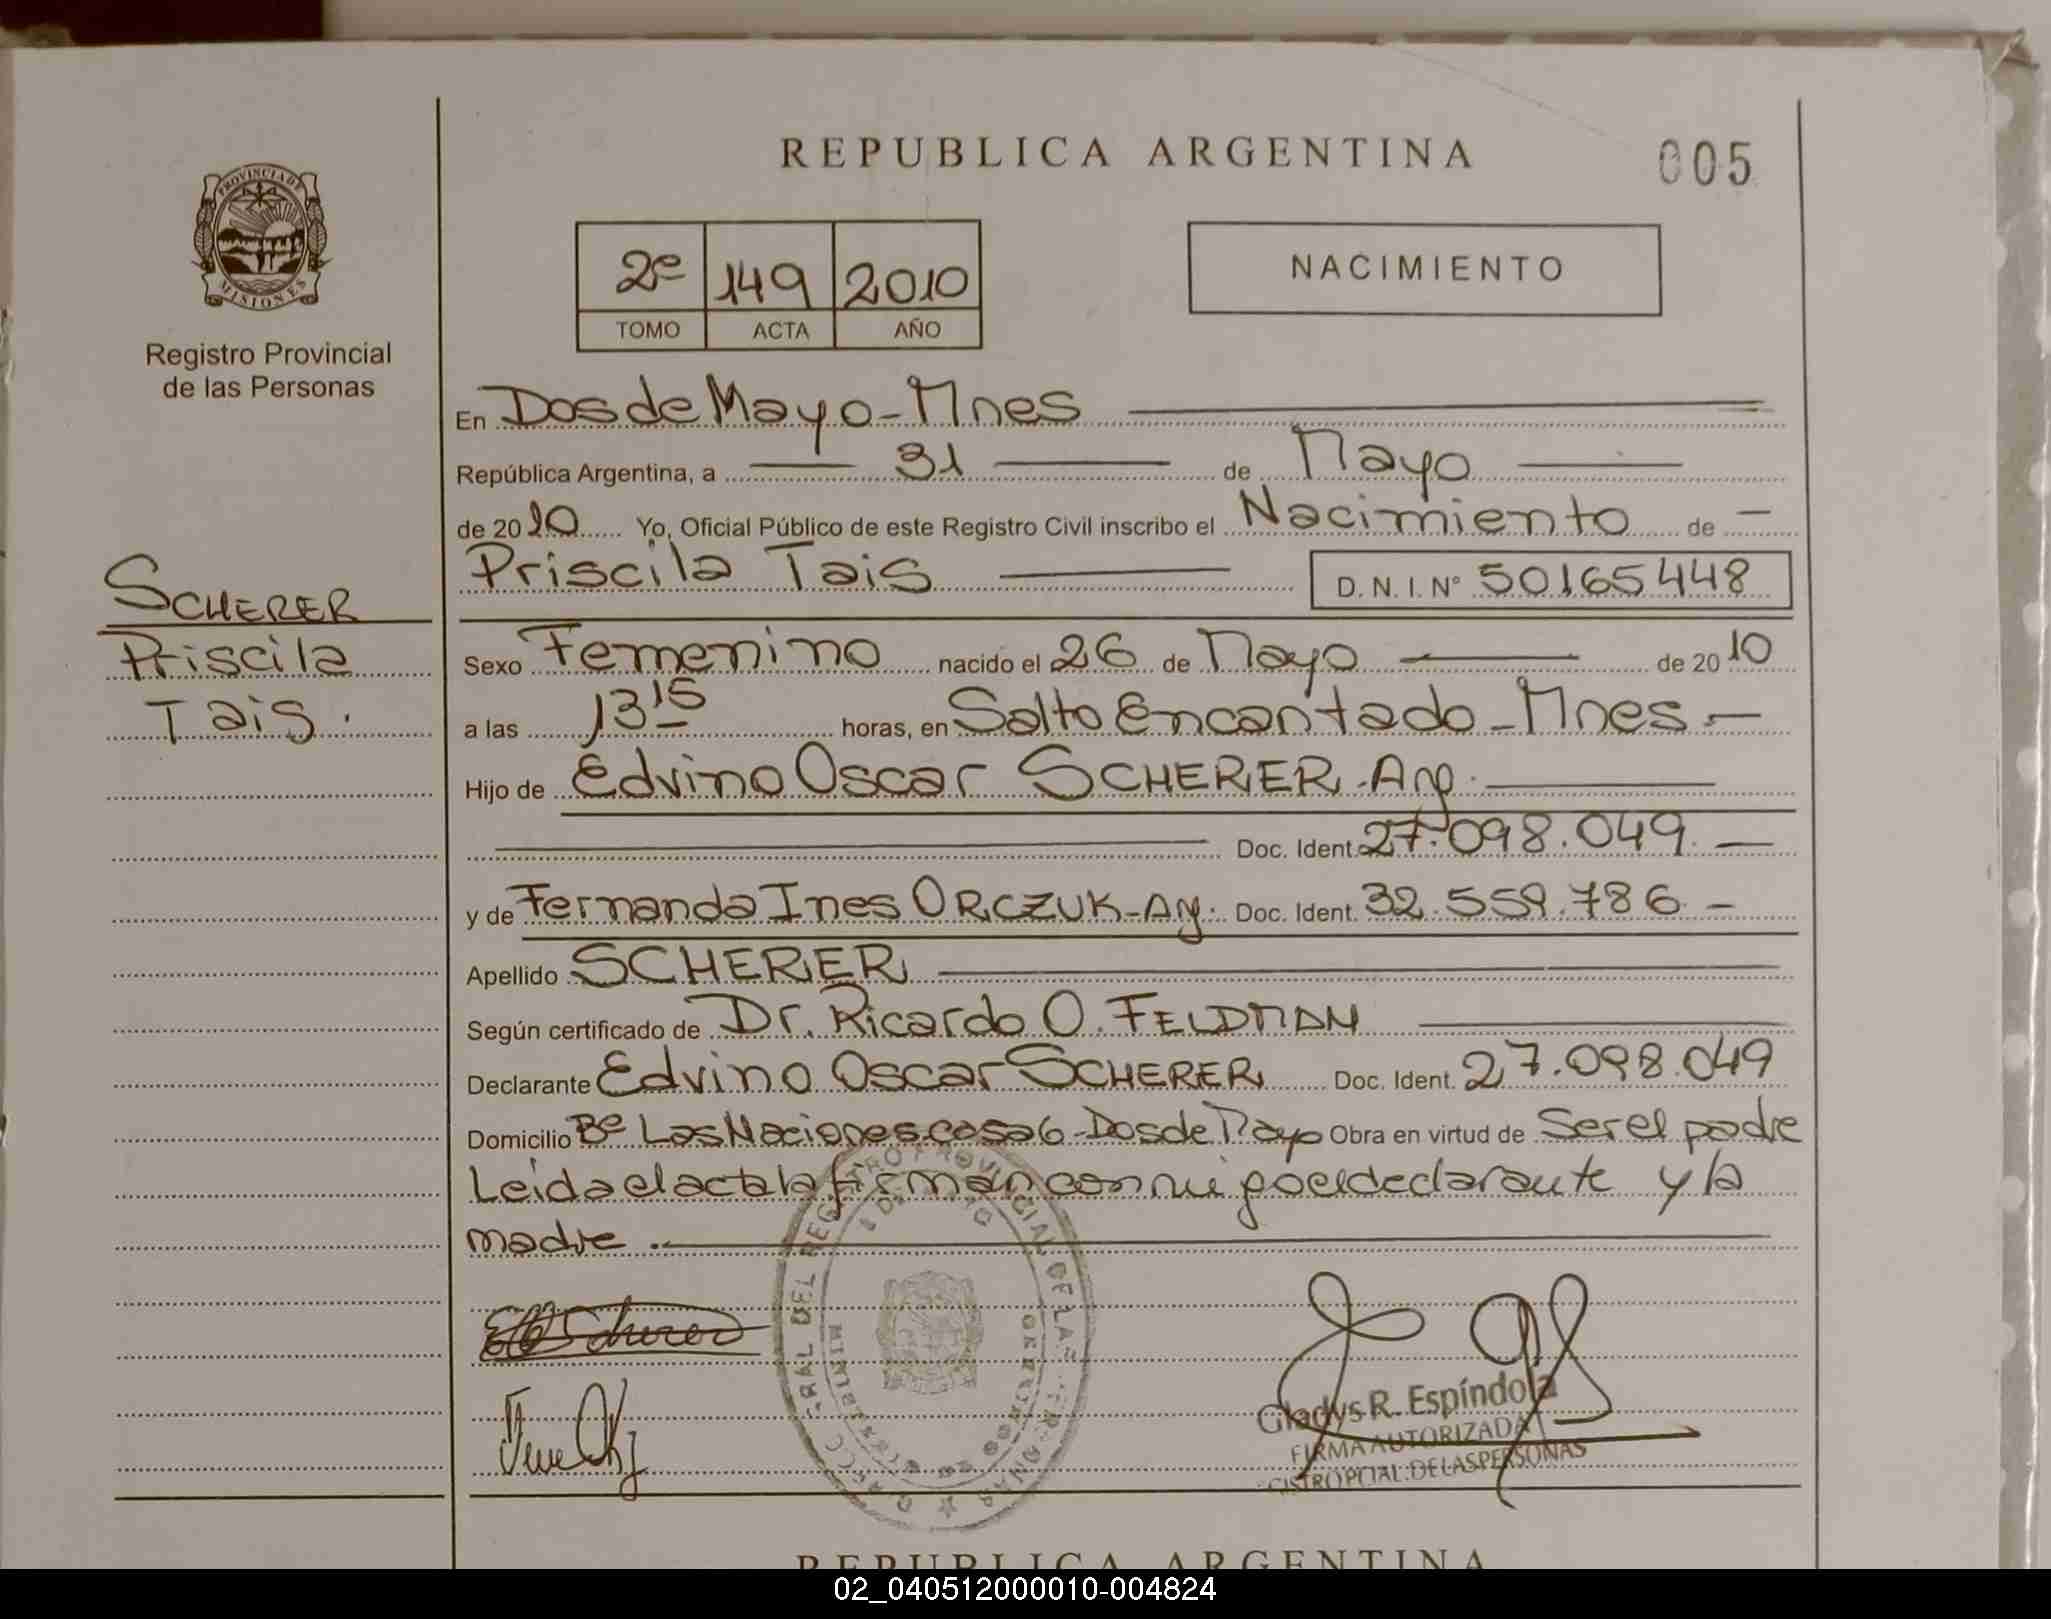 REPUBLICA ARGENTINA
005
PROVINCIA DE
MISIONES
Registro Provincial
de las Personas
2º 149 2010
TOMO ACTA AÑO
NACIMIENTO
En Dos de Mayo - Mnes
República Argentina, a 31 de Mayo
de 2010 Yo, Oficial Público de este Registro Civil inscribo el Nacimiento de
Priscila Tais D. N. I. N° 50165448
SCHERER
Priscila
Tais.
Sexo Femenino nacido el 26 de Mayo de 2010
a las 13 15 horas, en Salto Encantado - Mnes
Hijo de Edvino Oscar SCHERER - Arg.
Doc. Ident. 27.098.049
y de Fernanda Ines ORCZUK - Arg. Doc. Ident. 32.559.786
Apellido SCHERER
Según certificado de Dr. Ricardo O. FELDMAN
Declarante Edvino Oscar SCHERER Doc. Ident. 27.098.049
Domicilio Bº Las Naciones casa 6 - Dos de Mayo Obra en virtud de Ser el padre
Leida el acta la firman conmigo el declarante y la
madre.
Scherer
Gladys R. Espíndola
FIRMA AUTORIZADA
PCIAL. DE LAS PERSONAS
REPUBLICA ARGENTINA
02_040512000010-004824